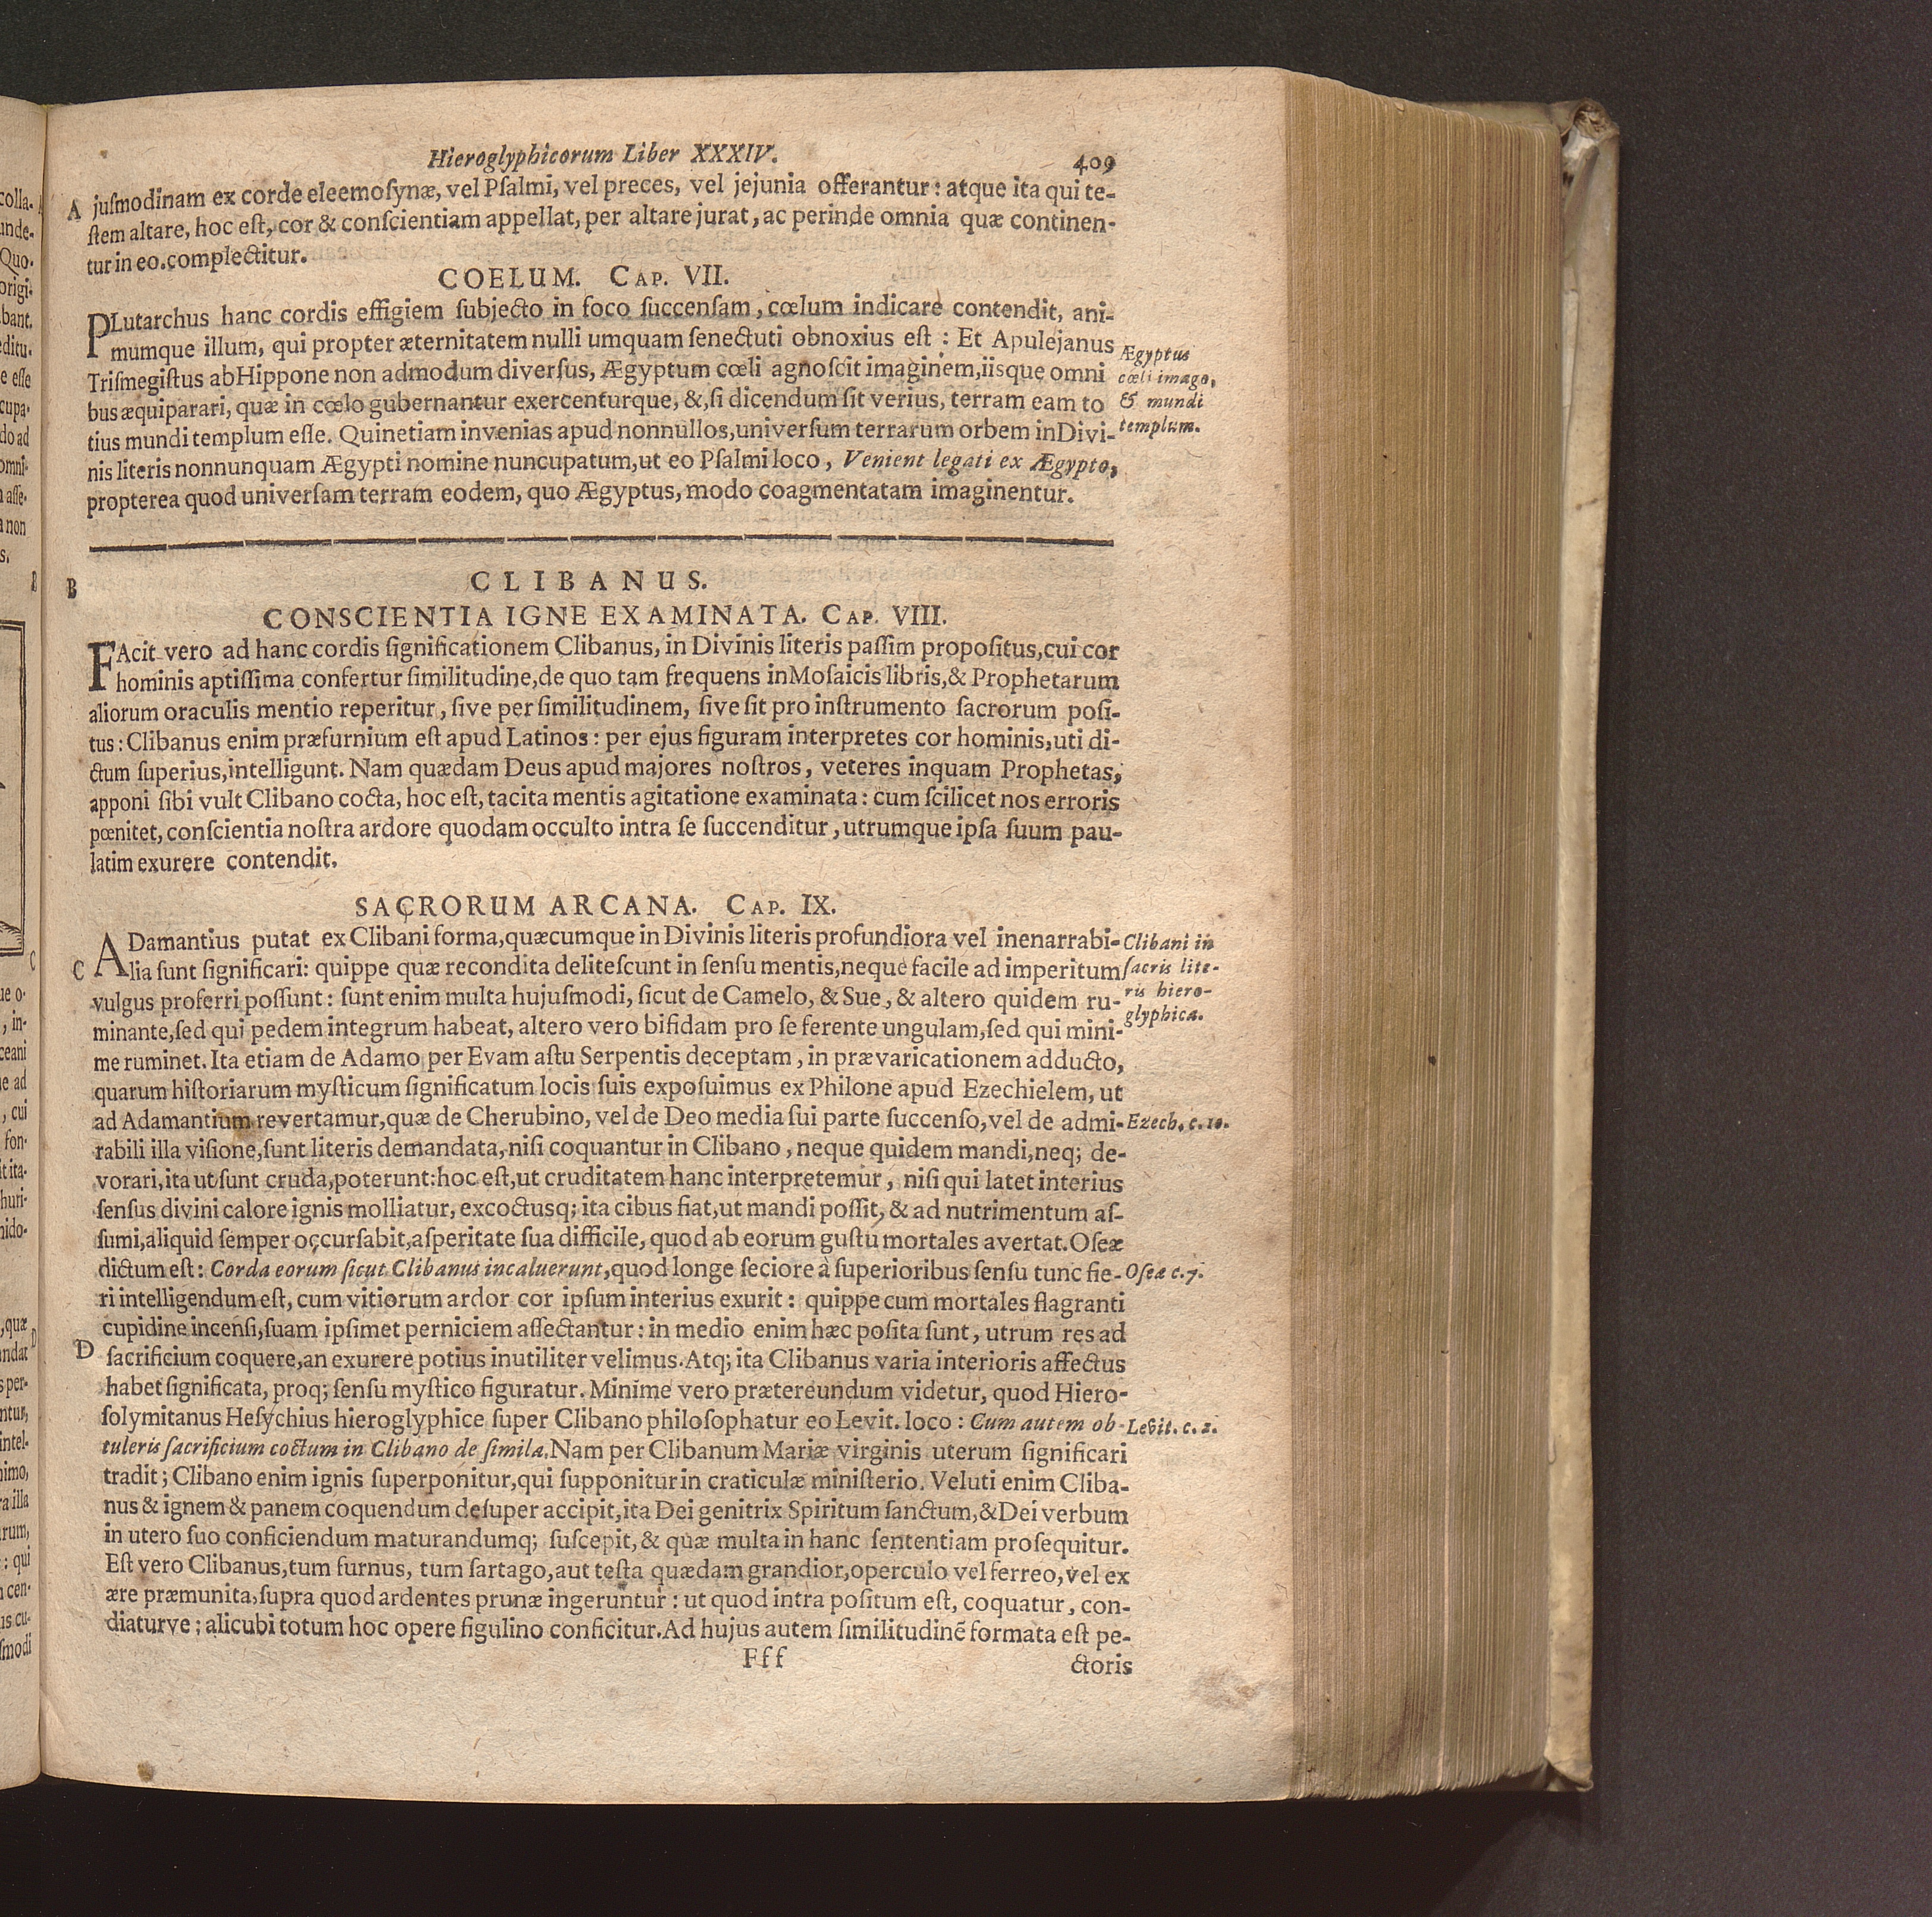 Hieroglyphicorum Liber XXXIV. 409
A juſmodinam ex corde eleemoſynæ, vel Pſalmi, vel preces, vel jejunia offerantur: atque ita qui te-
ſtem altare, hoc eſt, cor & conſcientiam appellat, per altare jurat, ac perinde omnia quæ continen-
tur in eo.complectitur.
COELUM. CAP. VII.
PLutarchus hanc cordis effigiem ſubjecto in foco ſuccenſam, cœlum indicare contendit, ani-
mumque illum, qui propter æternitatem nulli umquam ſenectuti obnoxius eſt : Et Apulejanus
Triſmegiſtus ab Hippone non admodum diverſus, Ægyptum cœli agnoſcit imaginem, iisque omni
bus æquiparari, quæ in cœlo gubernantur exercenturque, &, ſi dicendum ſit verius, terram eam to
tius mundi templum eſſe. Quinetiam invenias apud nonnullos, univerſum terrarum orbem in Divi-
nis literis nonnunquam Ægypti nomine nuncupatum, ut eo Pſalmi loco, Venient legati ex Ægypto,
propterea quod univerſam terram eodem, quo Ægyptus, modo coagmentatam imaginentur.
Ægyptus
cœli imago,
& mundi
templum.
B CLIBANUS.
CONSCIENTIA IGNE EXAMINATA. CAP. VIII.
FAcit vero ad hanc cordis ſignificationem Clibanus, in Divinis literis paſſim propoſitus, cui cor
hominis aptiſſima confertur ſimilitudine, de quo tam frequens in Moſaicis libris, & Prophetarum
aliorum oraculis mentio reperitur, ſive per ſimilitudinem, ſive ſit pro inſtrumento ſacrorum poſi-
tus: Clibanus enim præfurnium eſt apud Latinos: per ejus figuram interpretes cor hominis, uti di-
ctum ſuperius, intelligunt. Nam quædam Deus apud majores noſtros, veteres inquam Prophetas,
apponi ſibi vult Clibano cocta, hoc eſt, tacita mentis agitatione examinata: cum ſcilicet nos erroris
pœnitet, conſcientia noſtra ardore quodam occulto intra ſe ſuccenditur, utrumque ipſa ſuum pau-
latim exurere contendit.
SACRORUM ARCANA. CAP. IX.
ADamantius putat ex Clibani forma, quæcumque in Divinis literis profundiora vel inenarrabi-
C lia ſunt ſignificari: quippe quæ recondita deliteſcunt in ſenſu mentis, neque facile ad imperitum
vulgus proferri poſſunt: ſunt enim multa hujuſmodi, ſicut de Camelo, & Sue, & altero quidem ru-
minante, ſed qui pedem integrum habeat, altero vero bifidam pro ſe ferente ungulam, ſed qui mini-
me ruminet. Ita etiam de Adamo per Evam aſtu Serpentis deceptam, in prævaricationem adducto,
quarum hiſtoriarum myſticum ſignificatum locis ſuis expoſuimus ex Philone apud Ezechielem, ut
ad Adamantium revertamur, quæ de Cherubino, vel de Deo media ſui parte ſuccenſo, vel de admi-
rabili illa viſione, ſunt literis demandata, niſi coquantur in Clibano, neque quidem mandi, neq; de-
vorari, ita ut ſunt cruda, poterunt: hoc eſt, ut cruditatem hanc interpretemur, niſi qui latet interius
ſenſus divini calore ignis molliatur, excoctusq; ita cibus fiat, ut mandi poſſit, & ad nutrimentum aſ-
ſumi, aliquid ſemper occurſabit, aſperitate ſua difficile, quod ab eorum guſtu mortales avertat. Oſeæ
dictum eſt: Corda eorum ſicut Clibanus incaluerunt, quod longe ſeciore à ſuperioribus ſenſu tunc fie-
ri intelligendum eſt, cum vitiorum ardor cor ipſum interius exurit: quippe cum mortales flagranti
cupidine incenſi, ſuam ipſimet perniciem affectantur: in medio enim hæc poſita ſunt, utrum res ad
D ſacrificium coquere, an exurere potius inutiliter velimus. Atq; ita Clibanus varia interioris affectus
habet ſignificata, proq; ſenſu myſtico figuratur. Minime vero prætereundum videtur, quod Hiero-
ſolymitanus Heſychius hieroglyphice ſuper Clibano philoſophatur eo Levit. loco: Cum autem ob-
tuleris ſacrificium coctum in Clibano de ſimila. Nam per Clibanum Mariæ virginis uterum ſignificari
tradit; Clibano enim ignis ſuperponitur, qui ſupponitur in craticulæ miniſterio. Veluti enim Cliba-
nus & ignem & panem coquendum deſuper accipit, ita Dei genitrix Spiritum ſanctum, & Dei verbum
in utero ſuo conficiendum maturandumq; ſuſcepit, & quæ multa in hanc ſententiam proſequitur.
Eſt vero Clibanus, tum furnus, tum ſartago, aut teſta quædam grandior, operculo vel ferreo, vel ex
ære præmunita, ſupra quod ardentes prunæ ingeruntur: ut quod intra poſitum eſt, coquatur, con-
diaturve; alicubi totum hoc opere figulino conficitur. Ad hujus autem ſimilitudinẽ formata eſt pe-
Clibani in
ſacris lite-
ris hiero-
glyphica.
Ezech. c. 10.
Oſeæ c. 7.
Levit. c. 2.
Fff ctoris